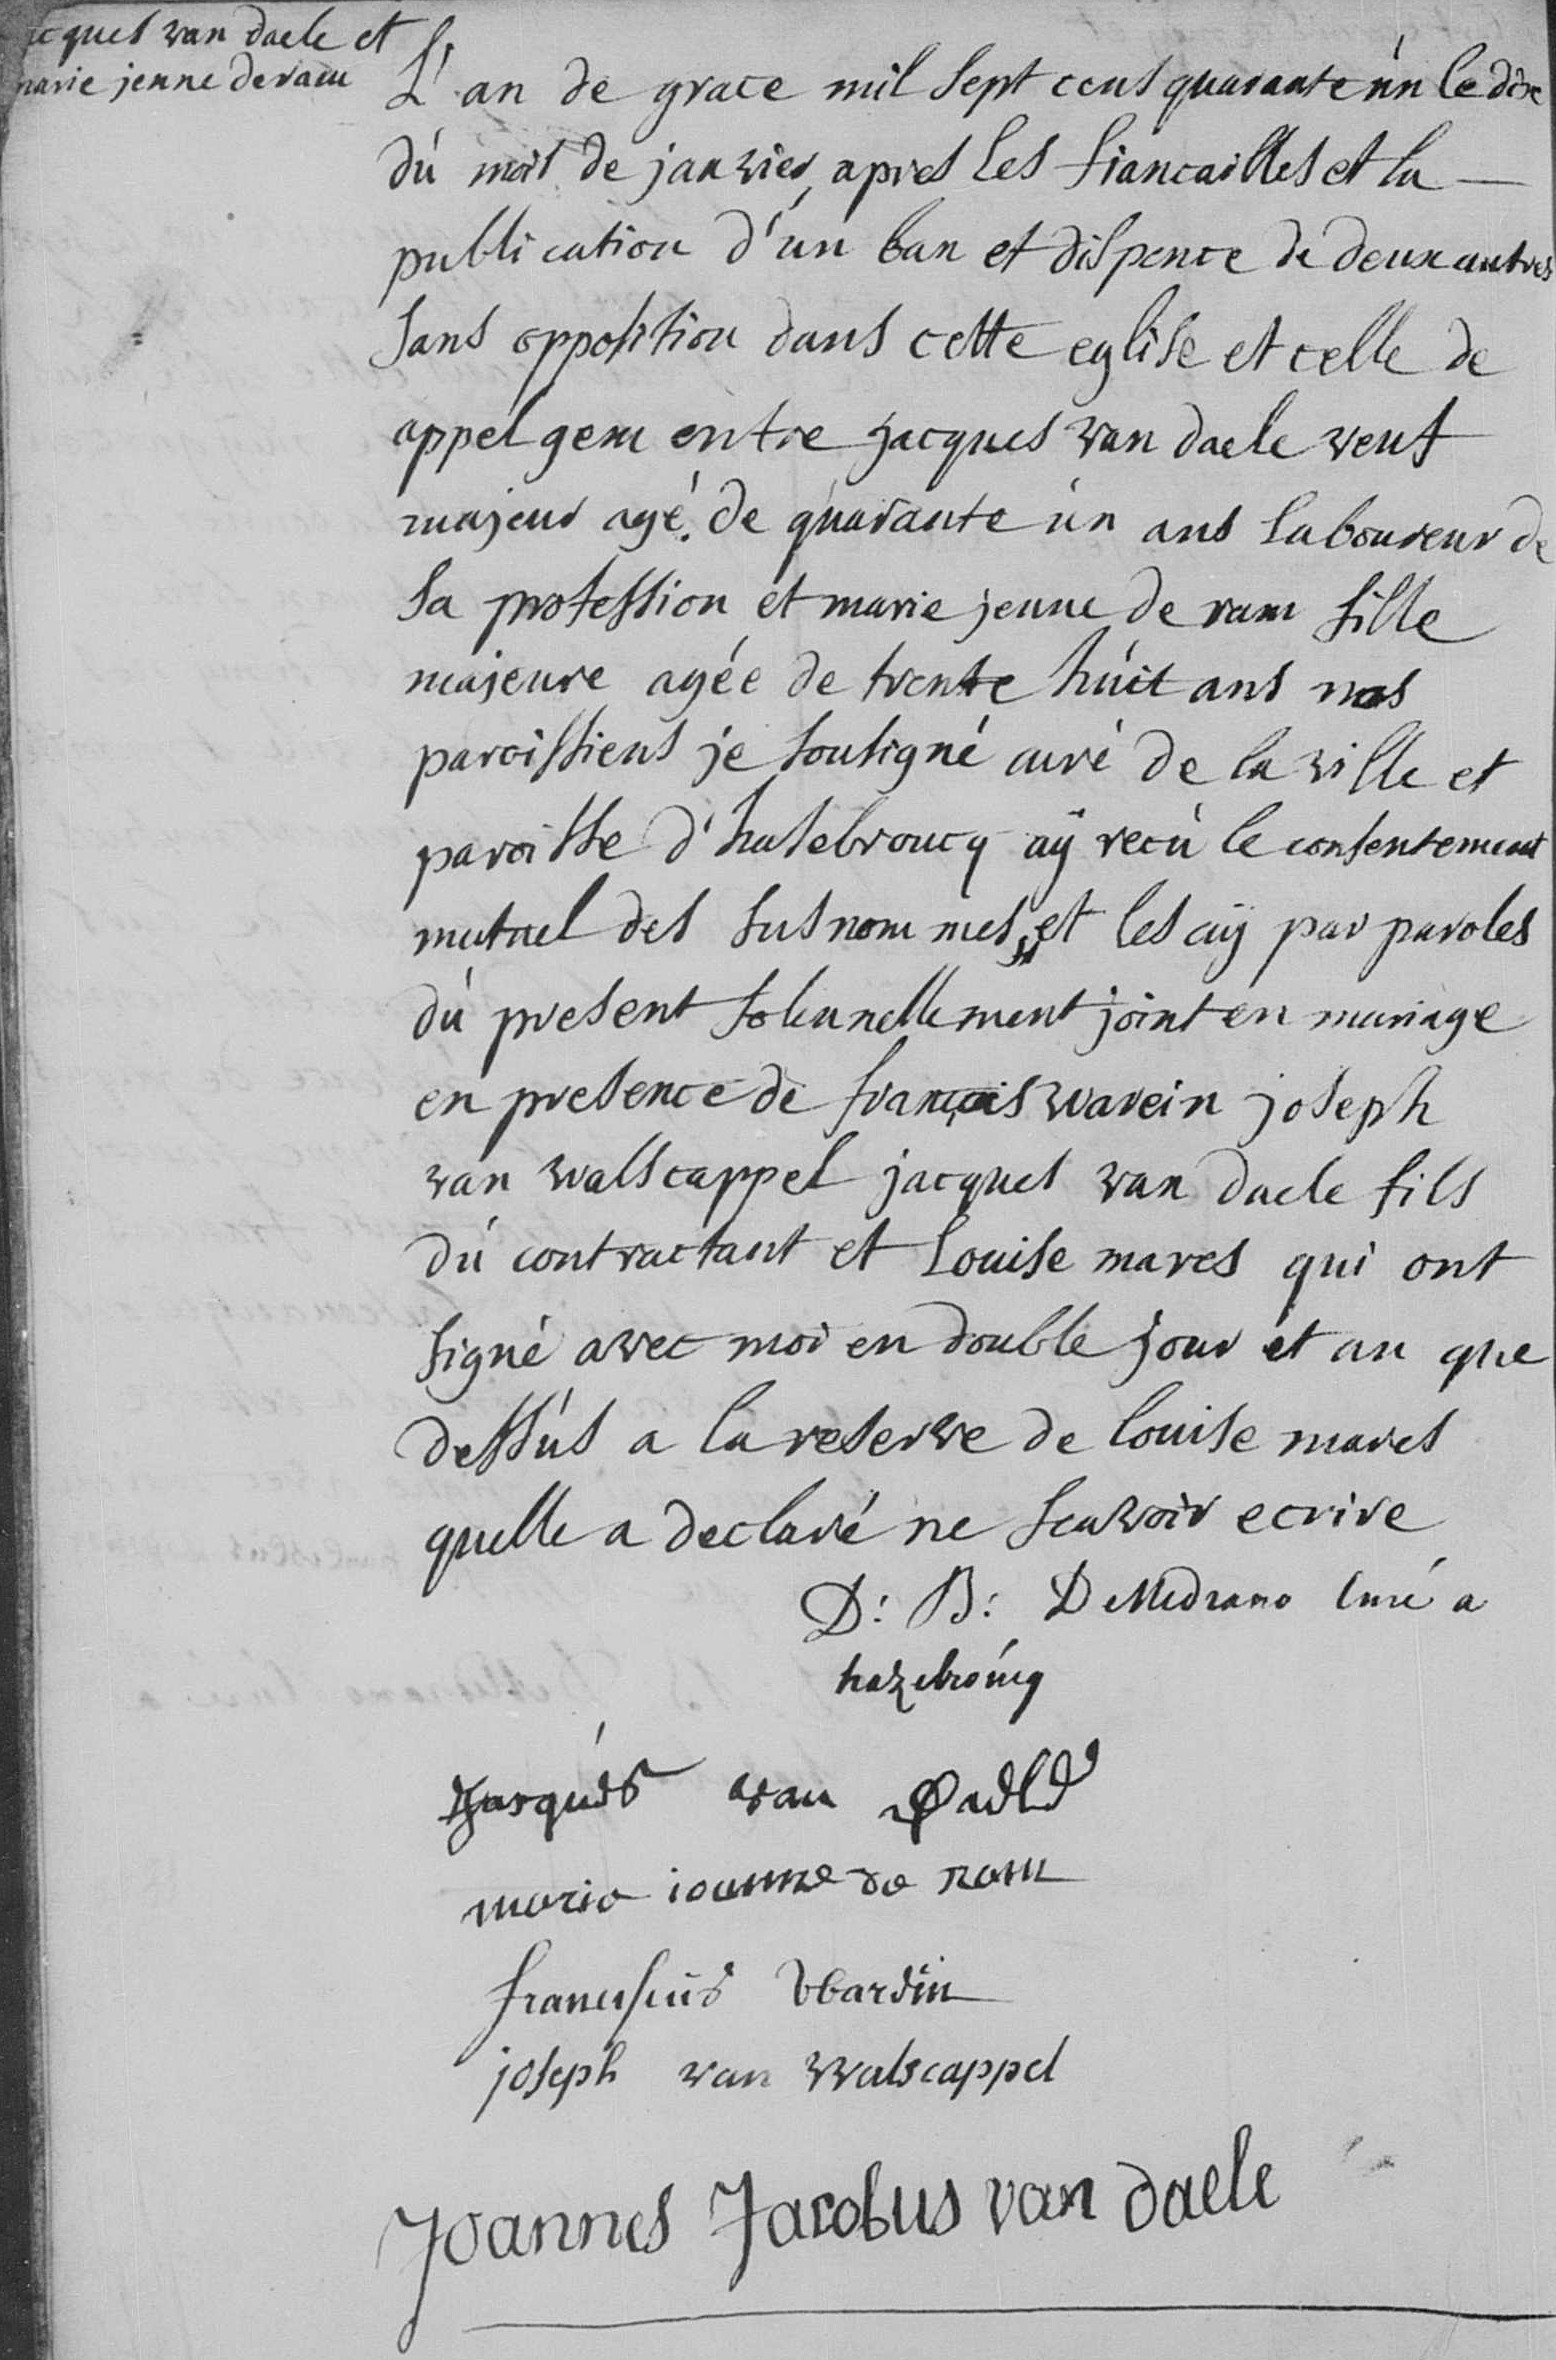 jacques van daele et
marie jenne de ram
L'an de grace mil sept cens quarante ún le dix
dú mois de janvier, apres les fiancailles et la —
publication d'ún ban et dispence de deux autres
sans opposition dans cette eglise et celle de
appelgem entre jacques van daele veuf
majeur agé de quarante ún ans laboureur de
sa profession et marie jenne de ram fille
majeure agée de trente húit ans nos
paroissiens je sousigné curé de la ville et
paroisse d'hasebroucq aÿ recú le consentement
mutuel des susnommes, et les aÿ par paroles
dú present solennellement joint en mariage
en presence de françois warein joseph
van walscappel jacques van daele fils
dú contractant et Louise mares qui ont
signé avec moi en double jour et an que
dessús a la reserve de louise mares
quelle a declaré ne scavoir ecrire
D: B: DeMedrano Curé a
hazebroúcq
Jacqúes van Daele
marie ieanne de ram
franciscús Warein
joseph van Walscappel
Joannes Jacobus van daele